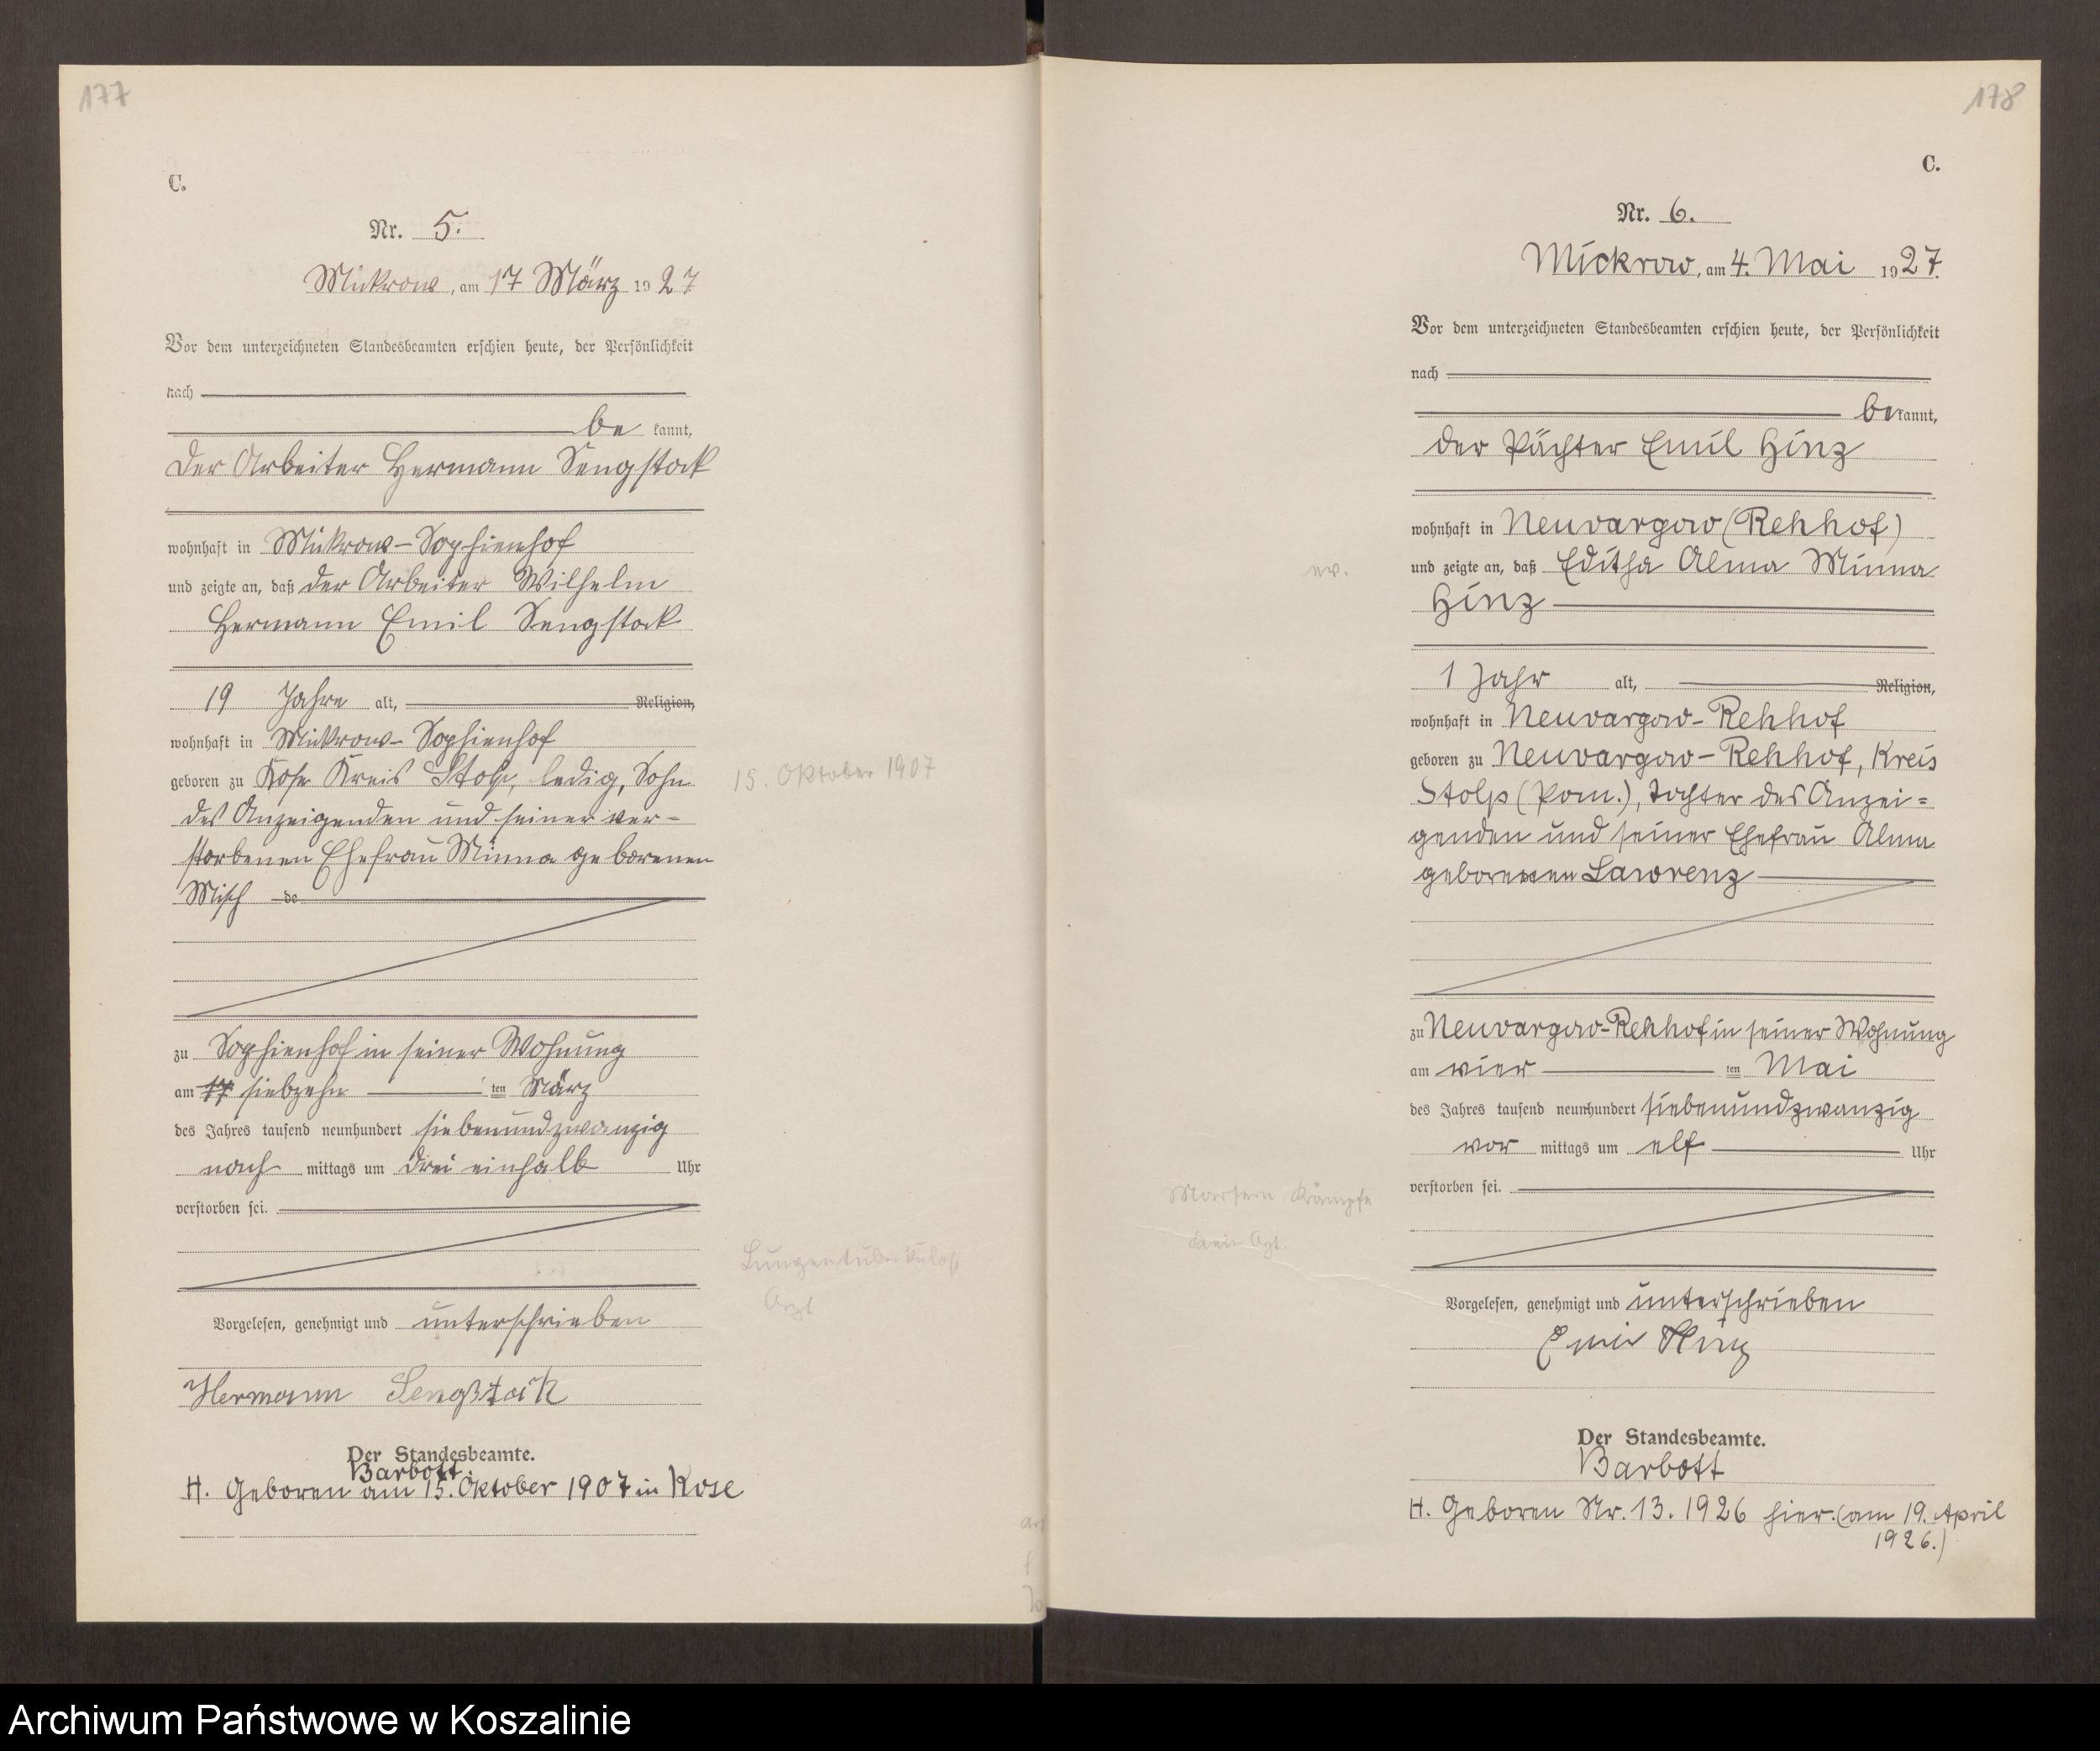 177
C.
Nr. 5.
Mickrow, am 17 März 1927
Vor dem unterzeichneten Standesbeamten erschien heute, der Persönlichkeit
nach
be kannt,
der Arbeiter Hermann Sengstock
wohnhaft in Mickrow-Sophienhof
und zeigte an, daß der Arbeiter Wilhelm
Hermann Emil Sengstock
19 Jahre alt, Religion,
wohnhaft in Mickrow-Sophienhof
geboren zu Kose Kreis Stolp, ledig, Sohn
15. Oktober 1907
des Anzeigenden und seiner ver-
storbenen Ehefrau Minna geborenen
Misch de
zu Sophienhof in seiner Wohnung
am 17 siebzehn ten März
des Jahres tausend neunhundert siebenundzwanzig
nach mittags um drei einhalb Uhr
verstorben sei.
Lungentuberkulose
Arzt
Vorgelesen, genehmigt und unterschrieben
Hermann Sengstock
Der Standesbeamte.
Barbott.
H. Geboren am 15. Oktober 1907 in Kose
178
C.
Nr. 6.
Mickrow, am 4. Mai 1927.
Vor dem unterzeichneten Standesbeamten erschien heute, der Persönlichkeit
nach
bekannt,
der Pächter Emil Hinz
wohnhaft in Neuvargow (Rehhof)
ev.
und zeigte an, daß Editha Alma Minna
Hinz
1 Jahr alt, Religion,
wohnhaft in Neuvargow-Rehhof
geboren zu Neuvargow-Rehhof, Kreis
Stolp (Pom.), Tochter des Anzei=
genden und seiner Ehefrau Alma
geborenen Lawrenz
zu Neuvargow-Rehhof in seiner Wohnung
am vier ten Mai
des Jahres tausend neunhundert siebenundzwanzig
vor mittags um elf Uhr
verstorben sei.
Masern Krämpfe
Vorgelesen, genehmigt und unterschrieben
Emil Hinz
Der Standesbeamte.
Barbott
H. Geboren Nr. 13. 1926 hier. (am 19. April
1926.)
Archiwum Państwowe w Koszalinie